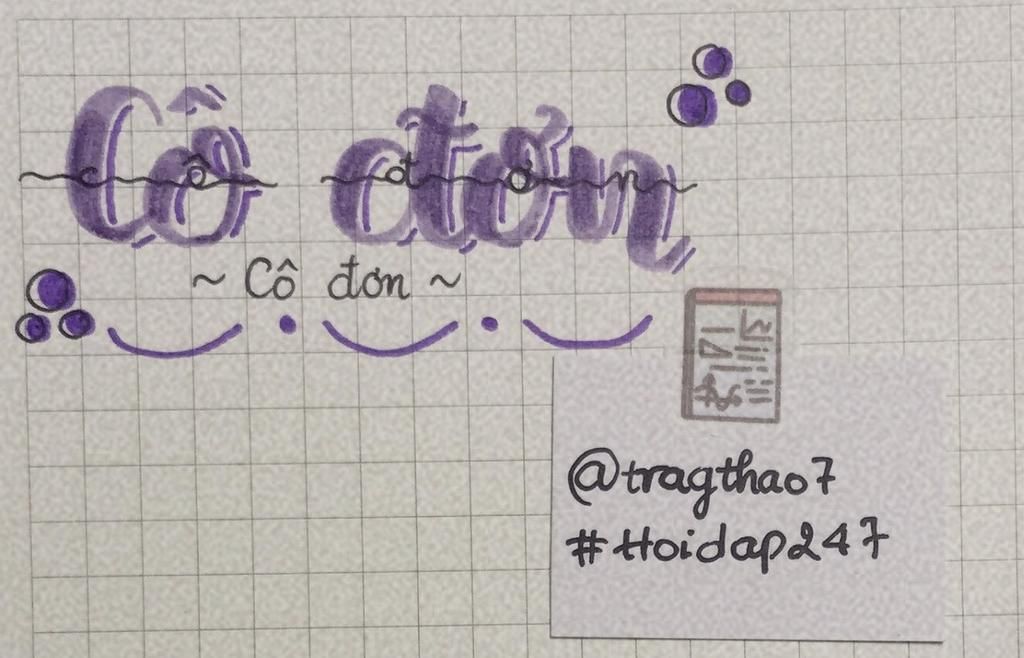 Cô đơn
cô đơn
~ Cô đơn ~
@tragthao7
#Hoidap247